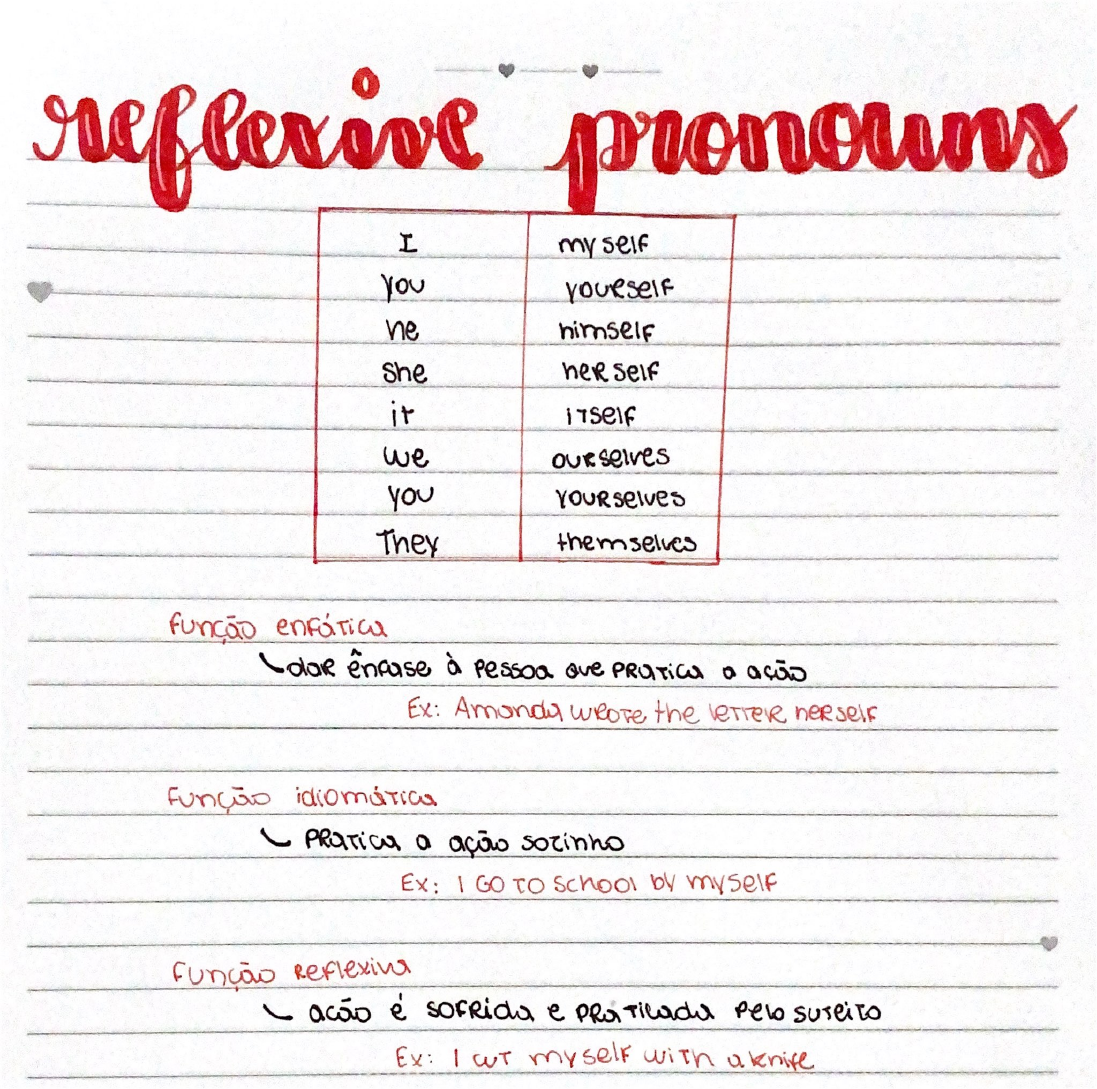 reflexive pronouns
I myself
you yourself
he himself
she herself
it itself
we ourselves
you yourselves
They themselves
função enfática
dar ênfase à pessoa que pratica a ação
Ex: Amanda wrote the letter herself
Função idiomática
pratica a ação sozinho
Ex: I go to school by myself
Função reflexiva
ação é sofrida e praticada pelo sujeito
Ex: I cut myself with a knife